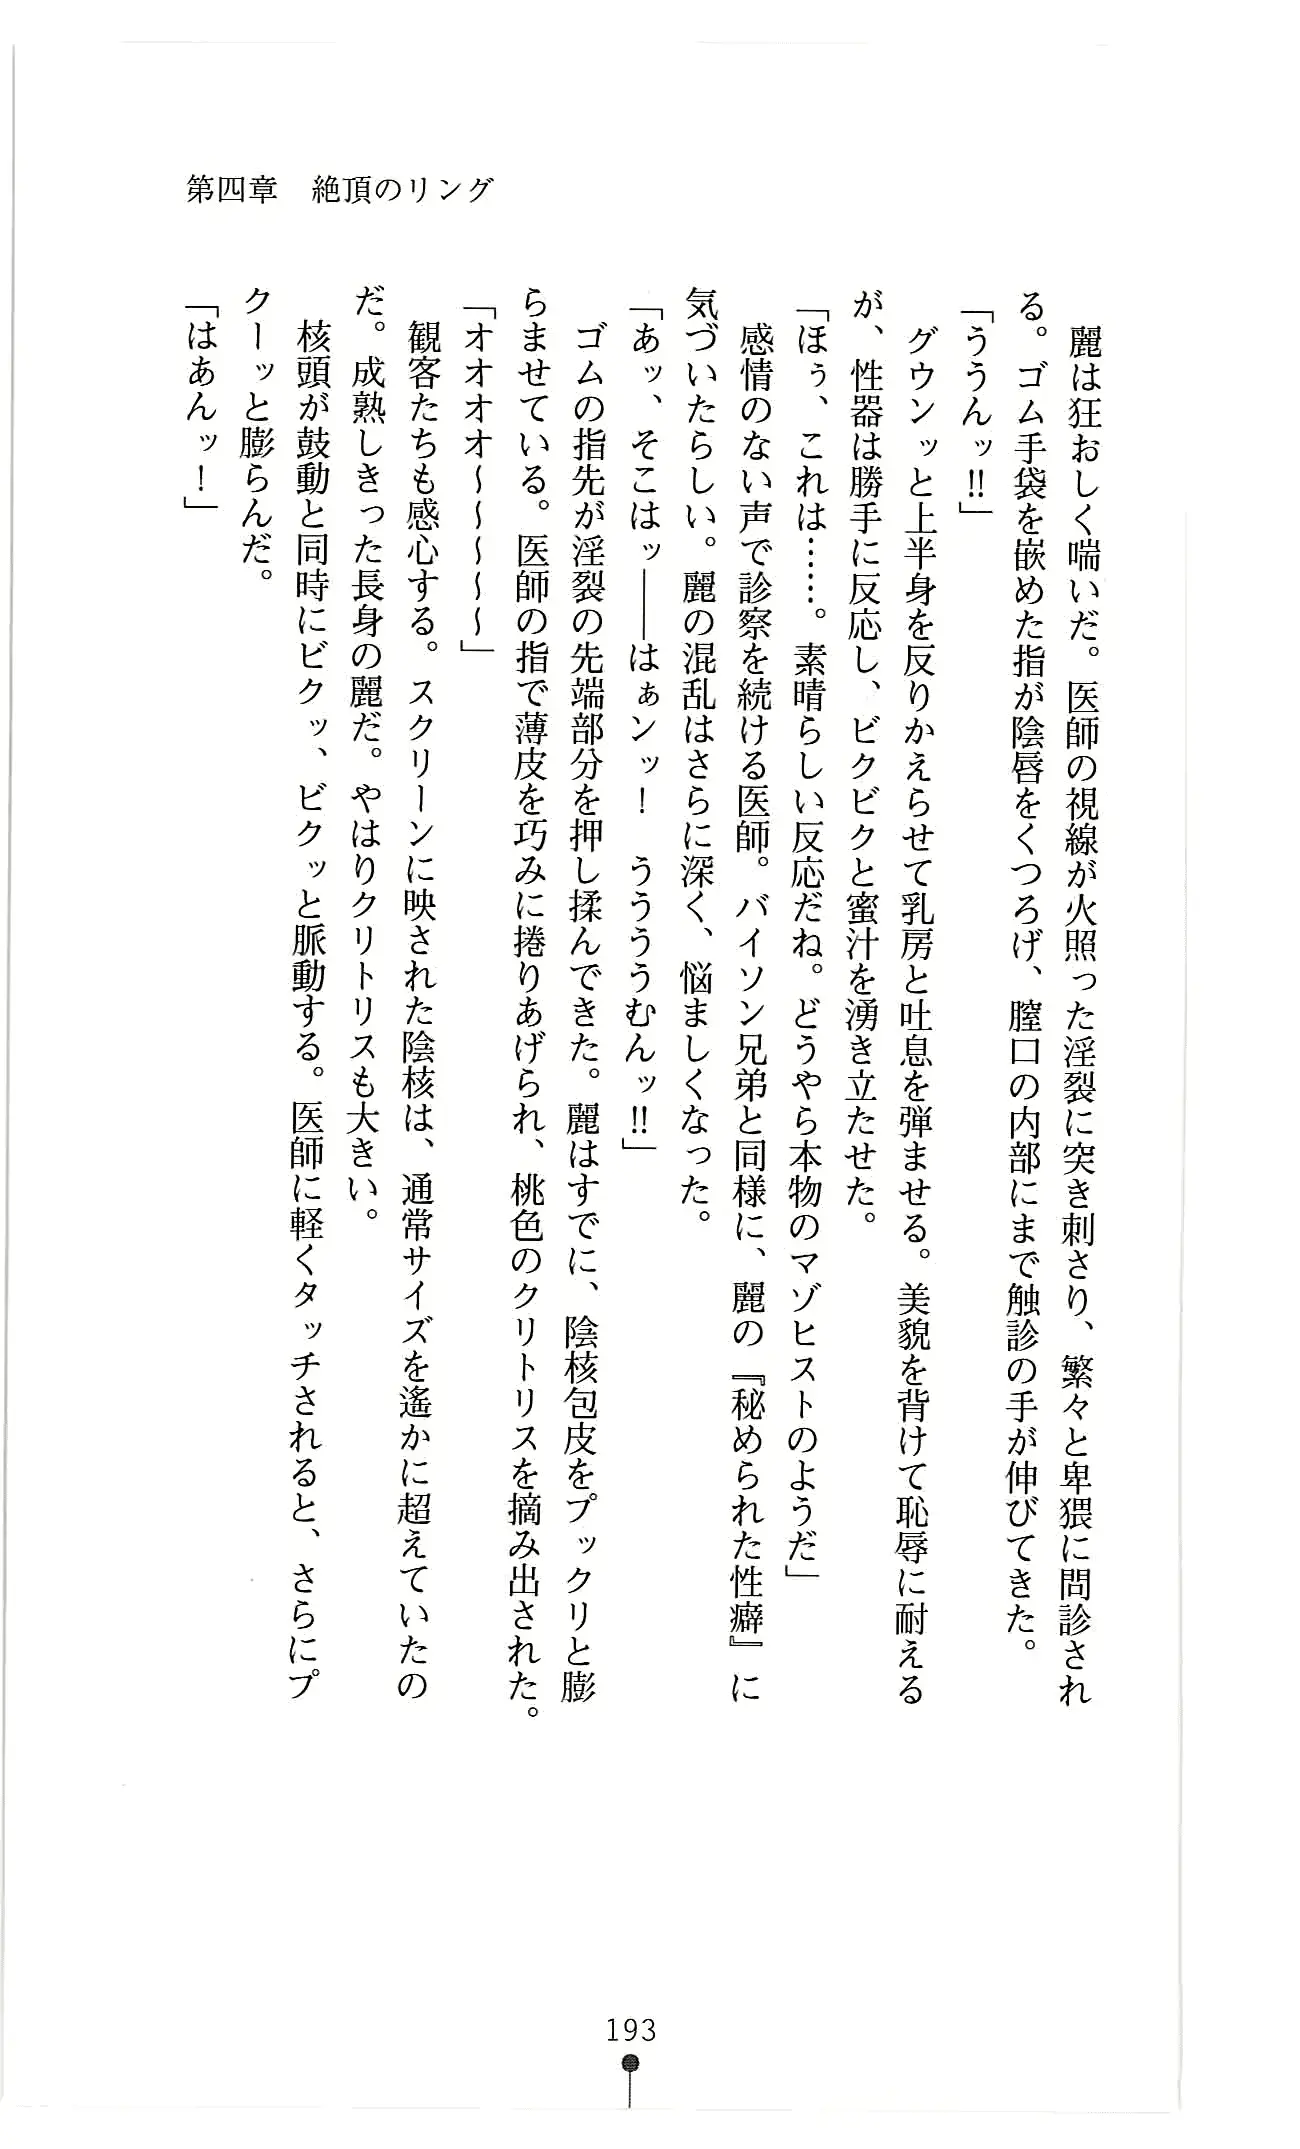 第四章　絶頂のリング
　麗は狂おしく喘いだ。医師の視線が火照った淫裂に突き刺さり、繁々と卑猥に問診され
る。ゴム手袋を嵌めた指が陰唇をくつろげ、膣口の内部にまで触診の手が伸びてきた。
「ううんッ!!」
　グウンッと上半身を反りかえらせて乳房と吐息を弾ませる。美貌を背けて恥辱に耐える
が、性器は勝手に反応し、ビクビクと蜜汁を湧き立たせた。
「ほぅ、これは……。素晴らしい反応だね。どうやら本物のマゾヒストのようだ」
　感情のない声で診察を続ける医師。バイソン兄弟と同様に、麗の『秘められた性癖』に
気づいたらしい。麗の混乱はさらに深く、悩ましくなった。
「あッ、そこはッ――はぁンッ！　ううううむんッ!!」
　ゴムの指先が淫裂の先端部分を押し揉んできた。麗はすでに、陰核包皮をプックリと膨
らませている。医師の指で薄皮を巧みに捲りあげられ、桃色のクリトリスを摘み出された。
「オオオオ～～～～～」
　観客たちも感心する。スクリーンに映された陰核は、通常サイズを遙かに超えていたの
だ。成熟しきった長身の麗だ。やはりクリトリスも大きい。
　核頭が鼓動と同時にビクッ、ビクッと脈動する。医師に軽くタッチされると、さらにプ
クーッと膨らんだ。
「はあんッ！」
193